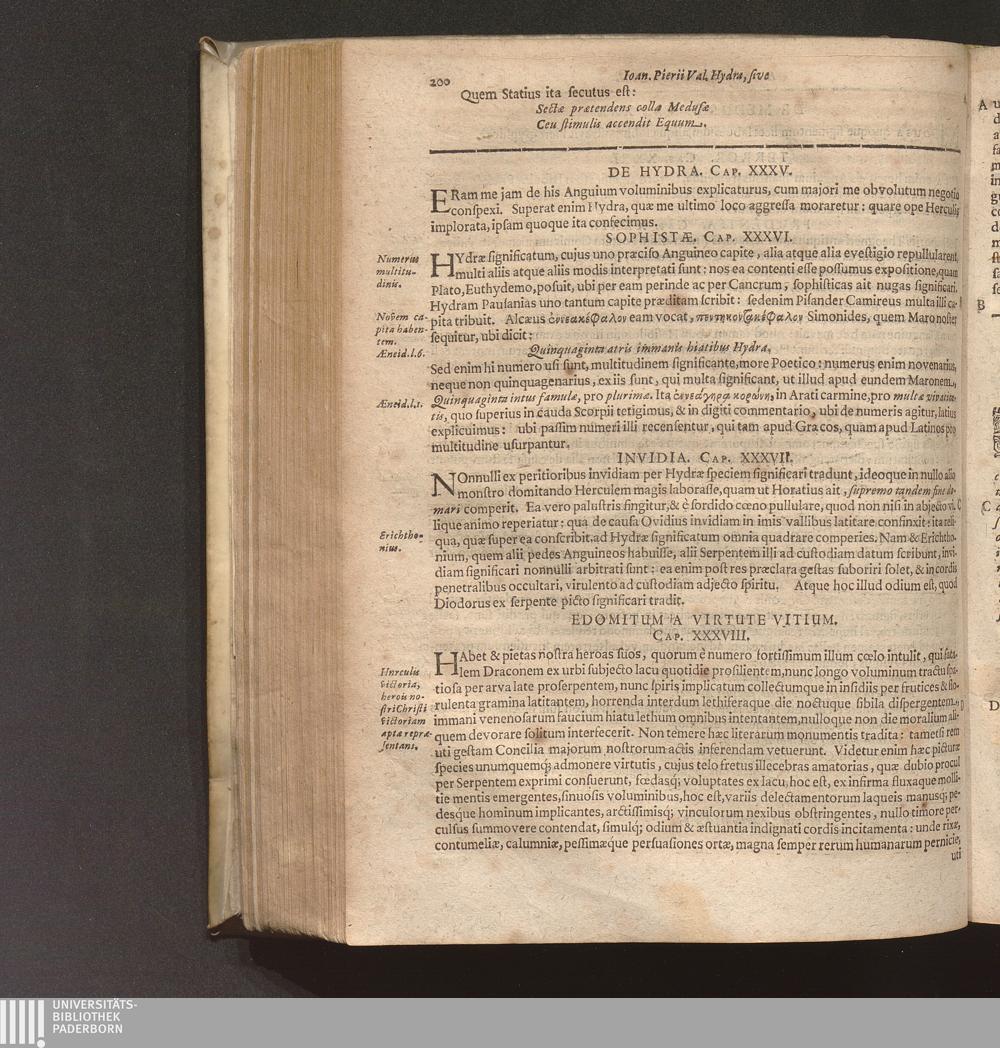 200
Ioan. Pierii Val. Hydra, ſive
Quem Statius ita ſecutus eſt:
Sectæ prætendens colla Meduſæ
Ceu ſtimulis accendit Equum.
DE HYDRA. CAP. XXXV.
ERam me jam de his Anguium voluminibus explicaturus, cum majori me obvolutum negotio
conſpexi. Superat enim Hydra, quæ me ultimo loco aggreſſa moraretur: quare ope Herculis
implorata, ipſam quoque ita confecimus.
SOPHISTÆ. CAP. XXXVI.
Numerus
multitu-
dinis.
HYdræ ſignificatum, cujus uno præciſo Anguineo capite, alia atque alia eveſtigio repullularent,
multi aliis atque aliis modis interpretati ſunt: nos ea contenti eſſe poſſumus expoſitione, quam
Plato, Euthydemo, poſuit, ubi per eam perinde ac per Cancrum, ſophiſticas ait nugas ſignificari.
Hydram Pauſanias uno tantum capite præditam ſcribit: ſed enim Piſander Camireus multa illi ca-
Novem ca-
pita haben-
tem.
pita tribuit. Alcæus ἐννεακέφαλον eam vocat, πεντηκοντακέφαλον Simonides, quem Maro noſter
ſequitur, ubi dicit:
Æneid. l. 6.
Quinquaginta atris immanis hiatibus Hydra.
Sed enim hi numero uſi ſunt, multitudinem ſignificante, more Poetico: numerus enim novenarius,
neque non quinquagenarius, ex iis ſunt, qui multa ſignificant, ut illud apud eundem Maronem,
Æneid. l. 1.
Quinquaginta intus famulæ, pro plurimæ. Ita ἐννεάγηρα κορώνη, in Arati carmine, pro multæ vivacita-
tis, quo ſuperius in cauda Scorpii tetigimus, & in digiti commentario, ubi de numeris agitur, latius
explicuimus: ubi paſſim numeri illi recenſentur, qui tam apud Græcos, quam apud Latinos pro
multitudine uſurpantur.
INVIDIA. CAP. XXXVII.
NOnnulli ex peritioribus invidiam per Hydræ ſpeciem ſignificari tradunt, ideoque in nullo alio
monſtro domitando Herculem magis laboraſſe, quam ut Horatius ait, ſupremo tandem fine do-
mari comperit. Ea vero paluſtris fingitur, & è ſordido cœno pullulare, quod non niſi in abjecto vi-
lique animo reperiatur: qua de cauſa Ovidius invidiam in imis vallibus latitare confinxit: ita reli-
Erichtho-
nius.
qua, quæ ſuper ea conſcribit, ad Hydræ ſignificatum omnia quadrare comperies. Nam & Erichtho-
nium, quem alii pedes Anguineos habuiſſe, alii Serpentem illi ad cuſtodiam datum ſcribunt, invi-
diam ſignificari nonnulli arbitrati ſunt: ea enim poſt res præclara geſtas ſuboriri ſolet, & in cordis
penetralibus occultari, virulento ad cuſtodiam adjecto ſpiritu. Atque hoc illud odium eſt, quod
Diodorus ex ſerpente picto ſignificari tradit.
EDOMITUM A VIRTUTE VITIUM.
CAP. XXXVIII.
HAbet & pietas noſtra heroas ſuos, quorum è numero fortiſſimum illum cœlo intulit, qui fata-
Herculis
victoria,
herois no-
ſtri Chriſti
victoriam
aptæ repræ-
ſentans.
lem Draconem ex urbi ſubjecto lacu quotidie proſilientem, nunc longo voluminum tractu ſpa-
tioſa per arva late proſerpentem, nunc ſpiris implicatum collectumque in inſidiis per frutices & flo-
rulenta gramina latitantem, horrenda interdum lethiferaque die noctuque ſibila diſpergentem,
immani venenoſarum faucium hiatu lethum omnibus intentantem, nulloque non die moralium ali-
quem devorare ſolitum interfecerit. Non temere hæc literarum monumentis tradita: tametſi rem
uti geſtam Concilia majorum noſtrorum actis inferendam vetuerunt. Videtur enim hæc picturæ
ſpecies unumquemq; admonere virtutis, cujus telo fretus illecebras amatorias, quæ dubio procul
per Serpentem exprimi conſuerunt, fœdasq; voluptates ex lacu, hoc eſt, ex infirma fluxaque molli-
tie mentis emergentes, ſinuoſis voluminibus, hoc eſt, variis delectamentorum laqueis manusq; pe-
desque hominum implicantes, arctiſſimisq; vinculorum nexibus obſtringentes, nullo timore per-
culſus ſummovere contendat, ſimulq; odium & æſtuantia indignati cordis incitamenta: unde rixæ,
contumeliæ, calumniæ, peſſimæque perſuaſiones ortæ, magna ſemper rerum humanarum pernicie,
uti
UNIVERSITÄTS-
BIBLIOTHEK
PADERBORN